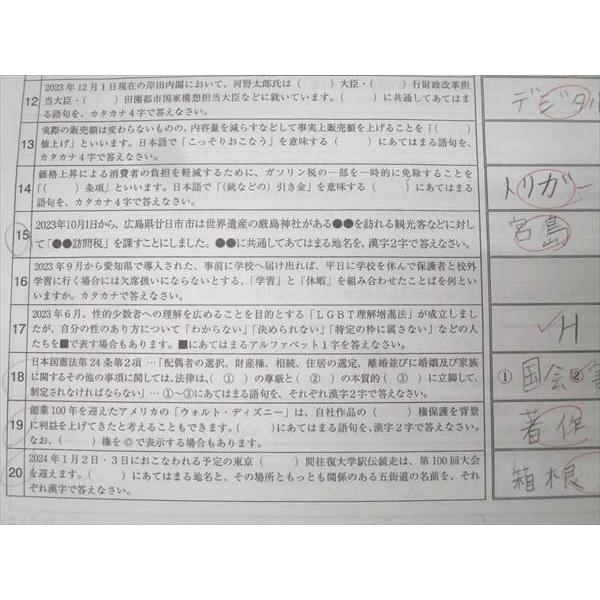 2023年12月1日現在の岸田内閣において、河野太郎氏は（　）大臣・（　）行財政改革担
12 当大臣・（　）田園都市国家構想担当大臣などに就いています。（　）に共通してあてはま
る語句を、カタカナ4字で答えなさい。
デジタル
実際の販売額は変わらないものの、内容量を減らすなどして事実上販売額を上げることを「（　）
13 値上げ」といいます。日本語で「こっそりおこなう」を意味する（　）にあてはまる語句を、
カタカナ4字で答えなさい。
価格上昇による消費者の負担を軽減するために、ガソリン税の一部を一時的に免除することを
14 「（　）条項」といいます。日本語で「（銃などの）引き金」を意味する（　）にあてはまる
語句を、カタカナ4字で答えなさい。
トリガー
2023年10月1日から、広島県廿日市市は世界遺産の厳島神社がある●●を訪れる観光客などに対し
15 て「●●訪問税」を課すことにしました。●●に共通してあてはまる地名を、漢字2字で答えなさい。
宮島
2023年9月から愛知県で導入された、事前に学校へ届け出れば、平日に学校を休んで保護者と校外
16 学習に行く場合には欠席扱いにならないとする、「学習」と「休暇」を組み合わせたことばを何とい
いますか。カタカナで答えなさい。
2023年6月、性的少数者への理解を広めることを目的とする「LGBT理解増進法」が成立しまし
17 たが、自分の性のあり方について「わからない」「決められない」「特定の枠に属さない」などの人
たちを■で表す場合もあります。■にあてはまるアルファベット1字を答えなさい。
H
日本国憲法第24条第2項…「配偶者の選択、財産権、相続、住居の選定、離婚並びに婚姻及び家族
18 に関するその他の事項に関しては、法律は、（①）の尊厳と（②）の本質的（③）に立脚して、
制定されなければならない」…①～③にあてはまる語句を、それぞれ漢字2字で答えなさい。
① 国会 ②
創業100年を迎えたアメリカの「ウォルト・ディズニー」は、自社作品の（　）権保護を背景
19 に利益を上げてきたと考えることもできます。（　）にあてはまる語句を、漢字2字で答えなさい。
なお、（　）権を©で表示する場合もあります。
著作
2024年1月2日・3日におこなわれる予定の東京（　）間往復大学駅伝競走は、第100回大会
20 を迎えます。（　）にあてはまる地名と、その場所ともっとも関係のある五街道の名前を、それ
ぞれ漢字で答えなさい。
箱根